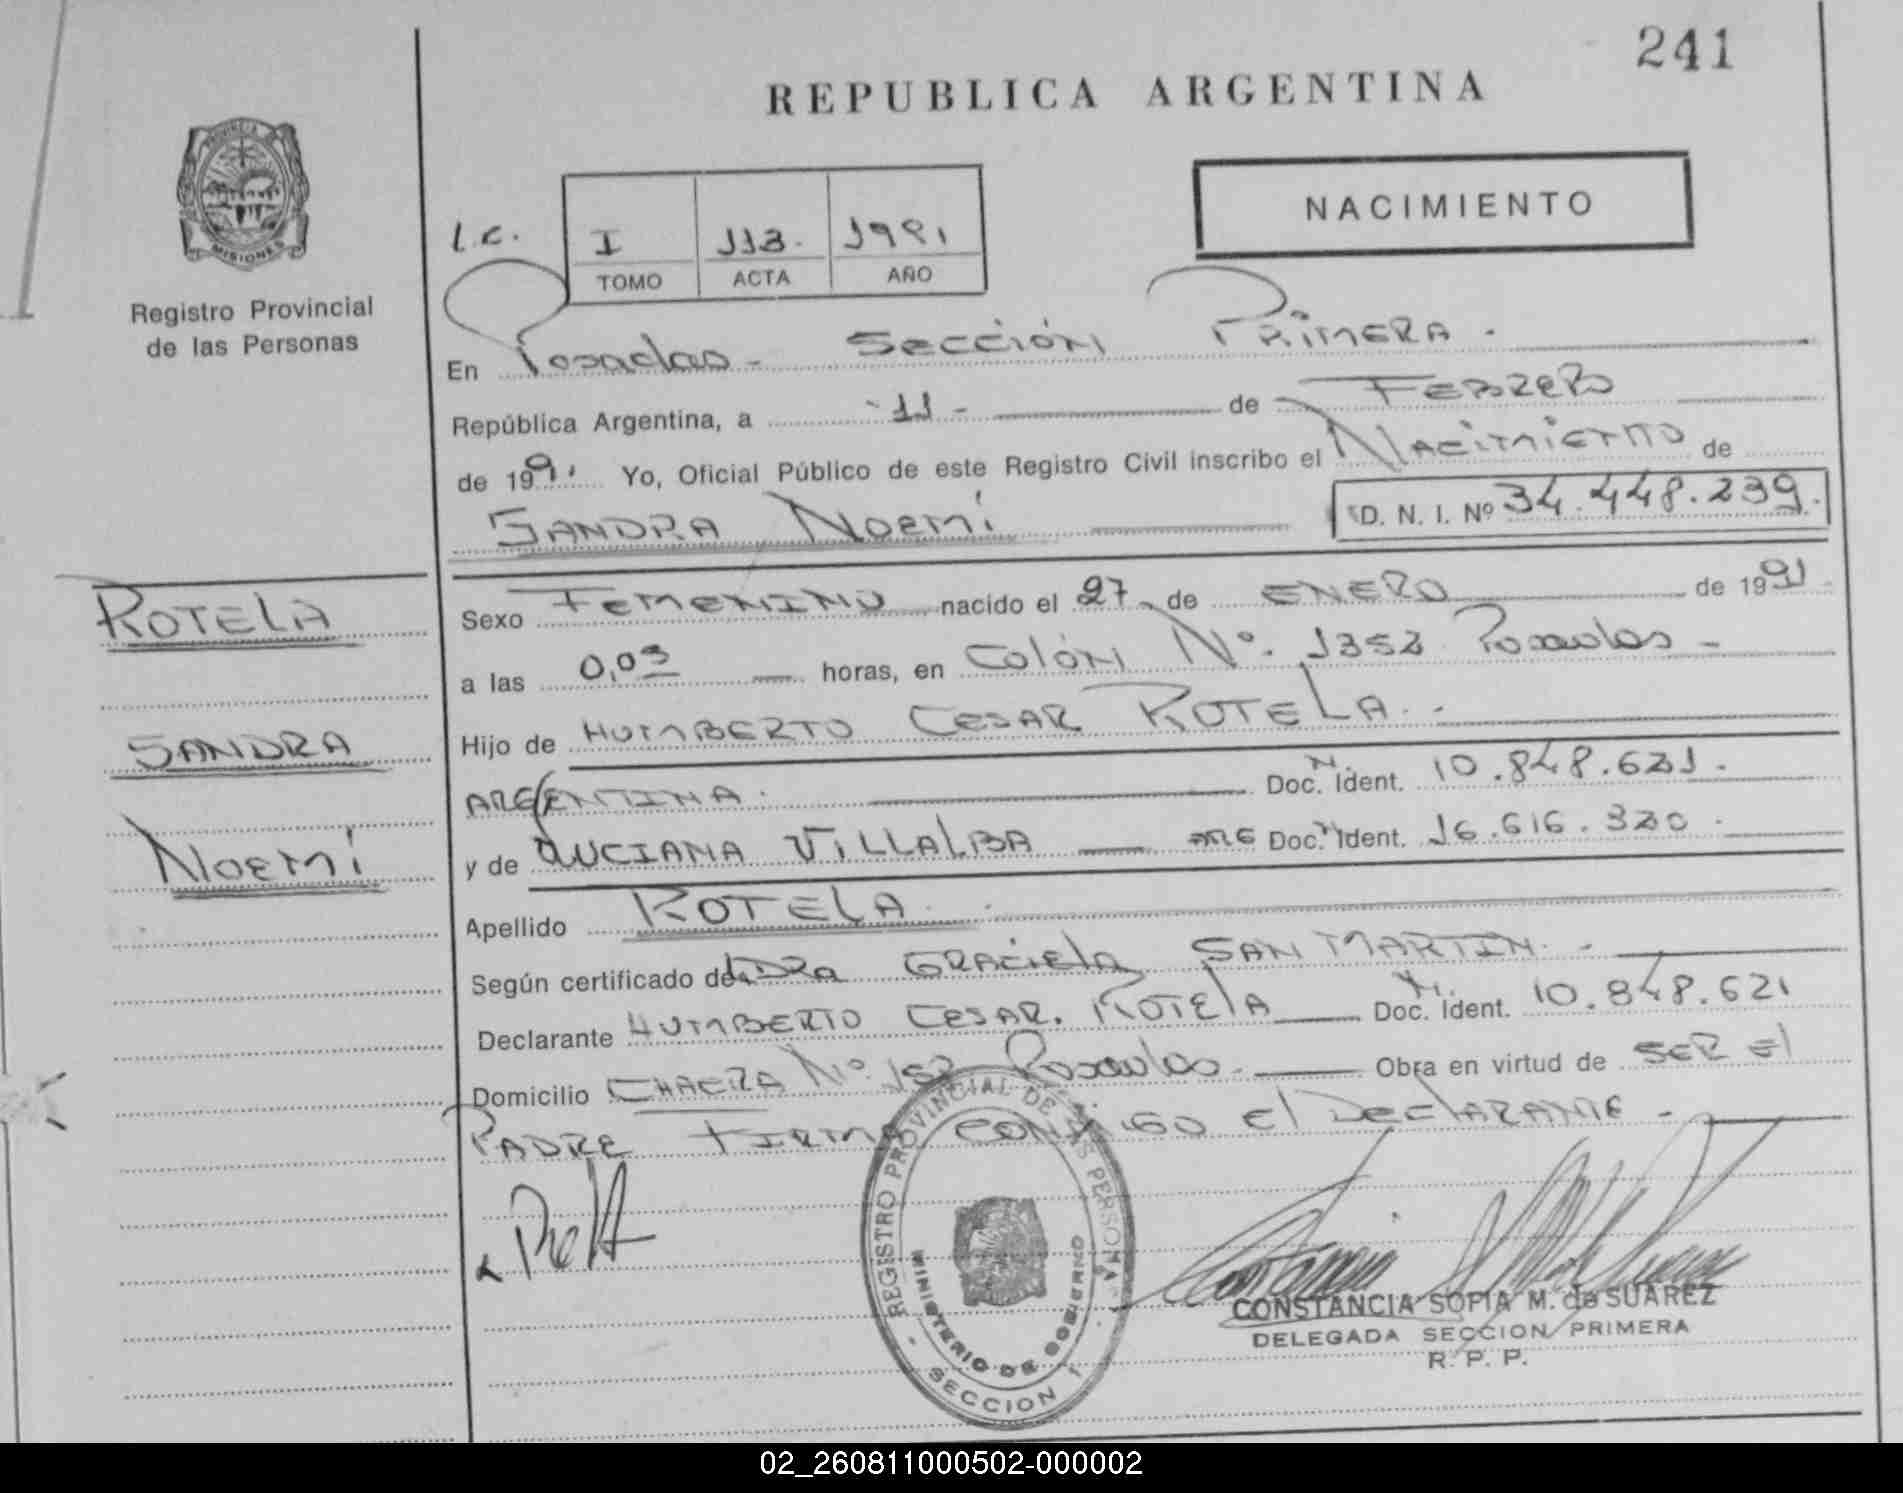 241
REPUBLICA ARGENTINA
PROVINCIA DE MISIONES
Registro Provincial
de las Personas
L.C. I 113. 1991
TOMO ACTA AÑO
NACIMIENTO
En Posadas - Sección Primera.
República Argentina, a -11- de FEBRERO
de 1991 Yo, Oficial Público de este Registro Civil inscribo el Nacimiento de
SANDRA Noemí D. N. I. Nº 34.448.239.
ROTELA
SANDRA
Noemí
Sexo FEMENINO nacido el 27 de ENERO de 1991
a las 0,03 horas, en Colón Nº. 1352 Posadas -
Hijo de HUMBERTO CESAR ROTELA.-
ARGENTINA. Doc. N. Ident. 10.848.621.
y de LUCIANA VILLALBA ARG Doc. N. Ident. 16.616.320.
Apellido ROTELA.
Según certificado de DRA GRACIELA SAN MARTIN.-
Declarante HUMBERTO CESAR. ROTELA Doc. N. Ident. 10.848.621
Domicilio CHACRA Nº. 152 Posadas. Obra en virtud de SER El
PADRE FIRMA CONMIGO El DEClARANTE -
REGISTRO PROVINCIAL DE LAS PERSONAS
MINISTERIO DE GOBIERNO
- SECCION 1 -
CONSTANCIA SOFIA M. de SUAREZ
DELEGADA SECCION PRIMERA
R. P. P.
02_260811000502-000002